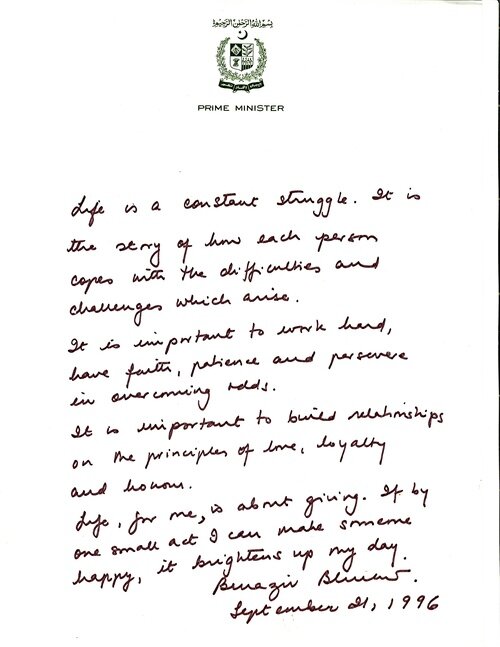 بسم الله الرحمن الرحيم
PRIME MINISTER
Life is a constant struggle. It is
the story of how each person
copes with the difficulties and
challenges which arise.
It is important to work hard,
have faith, patience and persevere
in overcoming odds.
It is important to build relationships
on the principles of love, loyalty
and honour.
Life, for me, is about giving. If by
one small act I can make someone
happy, it brightens up my day.
Benazir Bhutto.
September 21, 1996